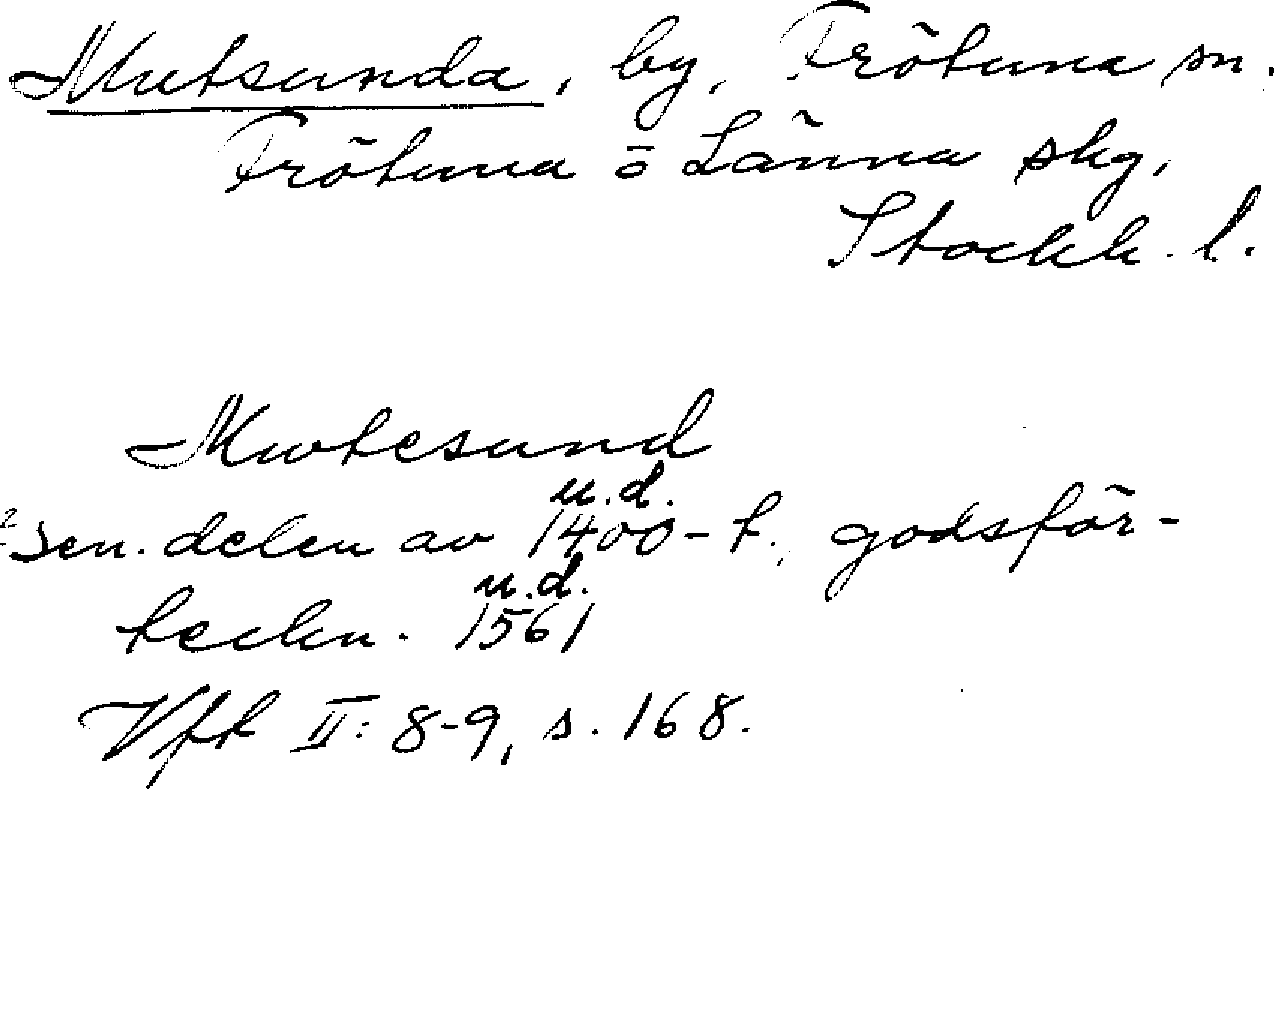 Mutsunda, by, Frötuna sn.
Frötuna o Länna skg,
Stockh. l.
Mwtesund
u.d.
Sen. delen av 1400-t., godsför-
u.d.
teckn. 1561
Vft II: 8-9, s. 168.